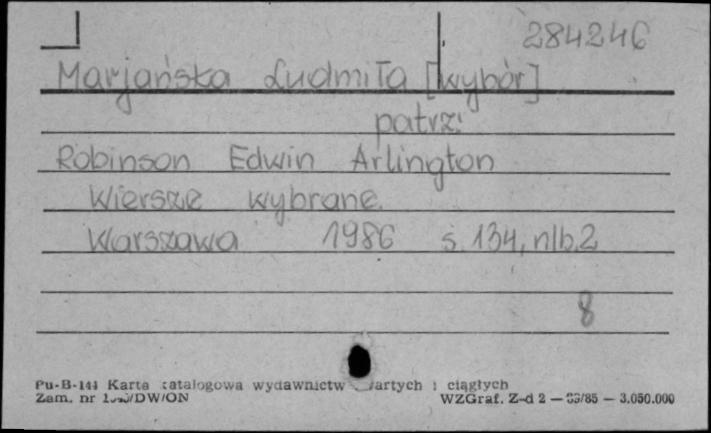 284246
Marjańska Ludmiła [wybór]
patrz:
Robinson Edwin Arlington
Wiersze wybrane.
Warszawa 1986 s. 134, nlb. 2
8
Pu-B-144 Karta katalogowa wydawnictw zwartych i ciągłych
Zam. nr /DW/ON WZGraf. Z-d 2 — /85 — 3.050.000